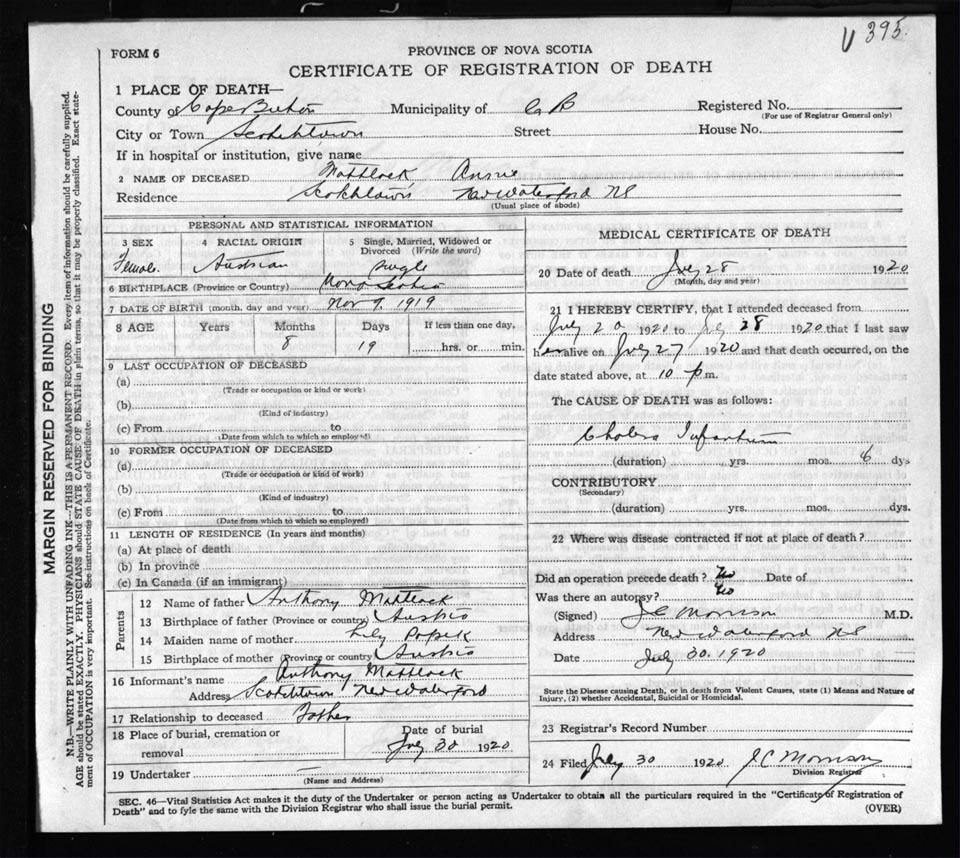 V 395.
FORM 6
PROVINCE OF NOVA SCOTIA
CERTIFICATE OF REGISTRATION OF DEATH
1 PLACE OF DEATH—
County of Cape Breton Municipality of C B Registered No.
(For use of Registrar General only)
City or Town Scotchtown Street House No.
If in hospital or institution, give name
2 NAME OF DECEASED Mattlock Annie
Residence Scotchtown New Waterford NS
(Usual place of abode)
PERSONAL AND STATISTICAL INFORMATION
3 SEX 4 RACIAL ORIGIN 5 Single, Married, Widowed or
Divorced (Write the word)
Female Austrian Single
6 BIRTHPLACE (Province or Country) Nova Scotia
7 DATE OF BIRTH (month, day and year) Nov 9, 1919
8 AGE Years Months Days If less than one day,
8 19 hrs. or min.
9 LAST OCCUPATION OF DECEASED
(a)
(Trade or occupation or kind or work)
(b)
(Kind of industry)
(c) From to
(Date from which to which so employed)
10 FORMER OCCUPATION OF DECEASED
(a)
(Trade or occupation or kind of work)
(b)
(Kind of industry)
(c) From to
(Date from which to which so employed)
11 LENGTH OF RESIDENCE (In years and months)
(a) At place of death
(b) In province
(c) In Canada (if an immigrant)
Parents
12 Name of father Anthony Mattlock
13 Birthplace of father (Province or country) Austria
14 Maiden name of mother Lily
15 Birthplace of mother (Province or country) Austria
16 Informant's name Anthony Mattlock
Address Scotchtown New Waterford
17 Relationship to deceased Father
18 Place of burial, cremation or
removal
Date of burial
July 30 1920
19 Undertaker
(Name and Address)
MEDICAL CERTIFICATE OF DEATH
20 Date of death July 28 1920
(Month, day and year)
21 I HEREBY CERTIFY, that I attended deceased from
July 20 1920 to July 28 1920 that I last saw
her alive on July 27 1920 and that death occurred, on the
date stated above, at 10 p m.
The CAUSE OF DEATH was as follows:
Cholera Infantum
(duration) yrs. mos. 6 dys
CONTRIBUTORY
(Secondary)
(duration) yrs. mos. dys.
22 Where was disease contracted if not at place of death?
Did an operation precede death? No Date of
Was there an autopsy? No
(Signed) J C Morrison M.D.
Address New Waterford NS
Date July 30. 1920
State the Disease causing Death, or in death from Violent Causes, state (1) Means and Nature of
Injury, (2) whether Accidental, Suicidal or Homicidal.
23 Registrar's Record Number
24 Filed July 30 1920 J. C Morrison
Division Registrar
SEC. 46—Vital Statistics Act makes it the duty of the Undertaker or person acting as Undertaker to obtain all the particulars required in the "Certificate of Registration of
Death" and to fyle the same with the Division Registrar who shall issue the burial permit.
(OVER)
MARGIN RESERVED FOR BINDING
N.B.—WRITE PLAINLY WITH UNFADING INK—THIS IS A PERMANENT RECORD. Every item of information should be carefully supplied.
AGE should be stated EXACTLY. PHYSICIANS should STATE CAUSE OF DEATH in plain terms, so that it may be properly classified. Exact state-
ment of OCCUPATION is very important. See instructions on back of Certificate.